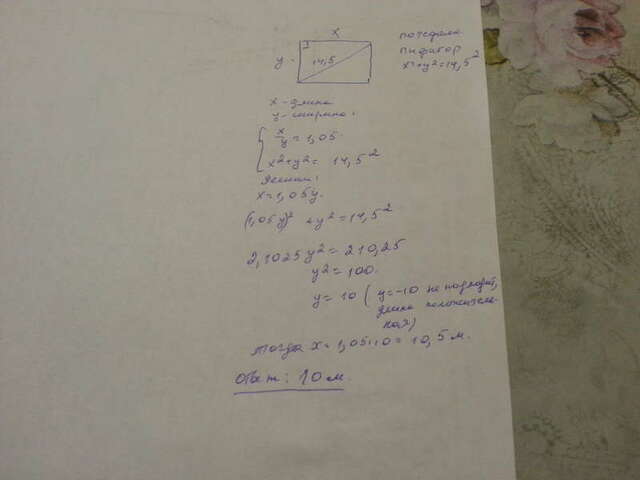 x
y
14,5
по теореме
пифагора
x²+y²=14,5²
x - длина
y - ширина.
x/y = 1,05
x²+y² = 14,5²
Решим:
x=1,05y.
(1,05y)² + y² = 14,5²
2,1025 y² = 210,25
y² = 100.
y = 10 ( y=-10 не подходит,
длина положитель-
ная)
тогда x = 1,05·10 = 10,5 м.
Ответ: 10 м.